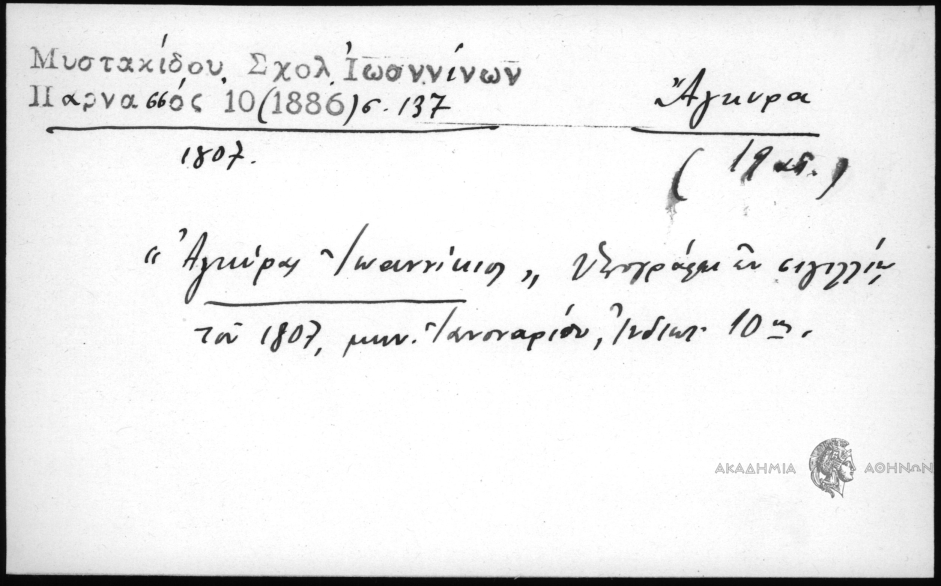 Μυστακίδου, Σχολ Ἰωαννίνων
Παρνασσός 10(1886)σ. 137
Ἄγκυρα
1807.
(19 αἰ.)
"Ἀγκύρας Ἰωαννίκιος„ ὑπογράφει ἐν σιγιλλίῳ
τοῦ 1807, μην. Ἰανουαρίου, Ἰνδικτ. 10ης.
ΑΚΑΔΗΜΙΑ ΑΘΗΝΩΝ